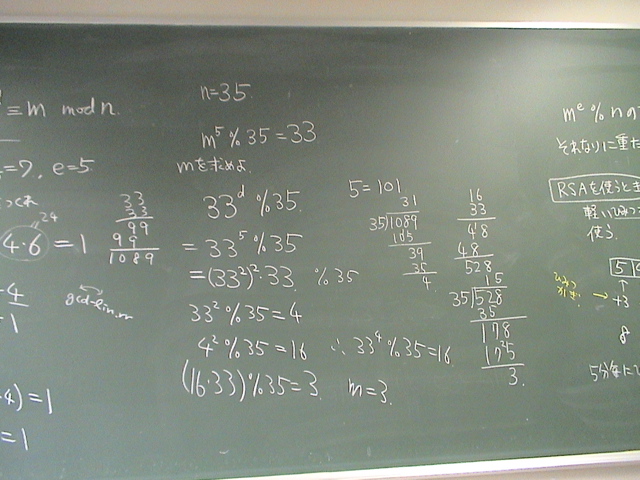 ≡ m mod n
=7, e=5
24
4·6 = 1
-4
-1
4) = 1
= 1
33
33
99
99
1089
n=35
m⁵ % 35 = 33
mを求めよ
33ᵈ % 35
= 33⁵ % 35
= (33²)²·33 % 35
33² % 35 = 4
4² % 35 = 16 ∴ 33⁴ % 35 = 16
(16·33) % 35 = 3 m=3.
5 = 101
31
35)1089
105
39
35
4
16
33
48
48
528
15
35)528
35
178
175
3.
mᵉ % nの
それなりに重た
RSAを使うとき
軽い
使う.
5
→ +3
8
5分毎に